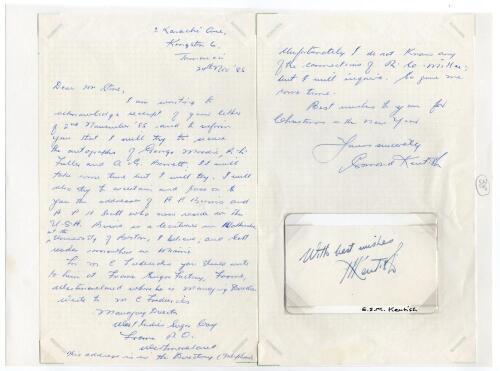 2 Karachi Ave,
Kingston 6,
Jamaica
20th Nov '86
Dear Mr
I am writing to
acknowledge receipt of your letter
of 2nd November '86 and to inform
you that I will try to secure
the autographs of George Mudie, R. L.
Fuller and A. G. Barrett. It will
take some time but I will try. I will
also try to ascertain and pass on to
you the addresses of A P Binns and
A P H Scott who now reside in the
U.S.A. Binns is a lecturer in
at the University of Boston, I believe, and Scott
resides somewhere in
For M C Frederick you should write
to him at Frome Sugar Factory, Frome,
Westmoreland where he is Managing Director
Write to M C Frederick
Managing Director
West Indies Sugar Coy
Frome P.O.
Westmoreland
This address is in the Directory (Telephone
Unfortunately I do not know any
of the connections of R. Co. Miller
but I will inquire. So give me
some time.
Best wishes to you for
Christmas & the New Year
Yours sincerely
Esmond Kentish
With best wishes
Kentish
E.S.M. Kentish